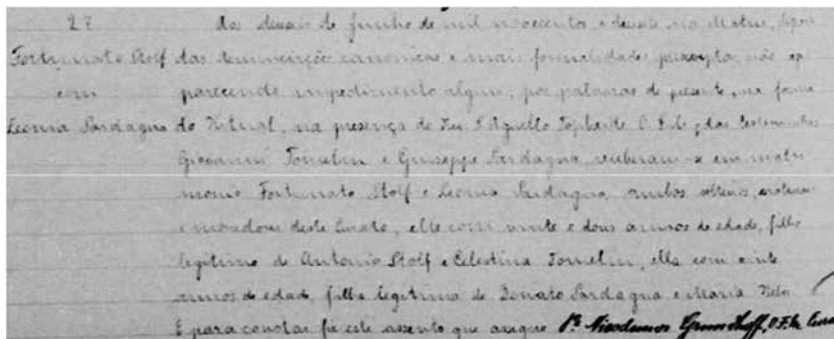 27 Aos deseis de Junho de mil novecentos e desesete na Matriz, depois
Fortunato Stolf das denunciações canonicas e mais formalidades prescriptas, não ap
com parecendo impedimento algum, por palavras de presente, na forma
Leonia Sardagna do Ritual, na presença do Rev. P. das testemunhas
Giovanni Tomelin e Giuseppe Sardagna, receberam-se em matri
monio Fortunato Stolf e Leonia Sardagna, ambos solteiros,
e moradores deste Curato, elle com vinte e dous annos de edade, filho
legitimo de Antonio Stolf e Celestina Tomelin, ella com vinte
annos de edade, filha legitima de Donato Sardagna e Maria
E para constar fiz este assento que assigno Pe. Nicodemos Grundhoff, O.F.M. Cura